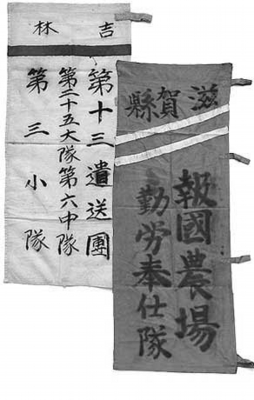 吉林
第十三遣送團
第二十五大隊第六中隊
第三小隊
滋賀縣
報國農場
勤労奉仕隊